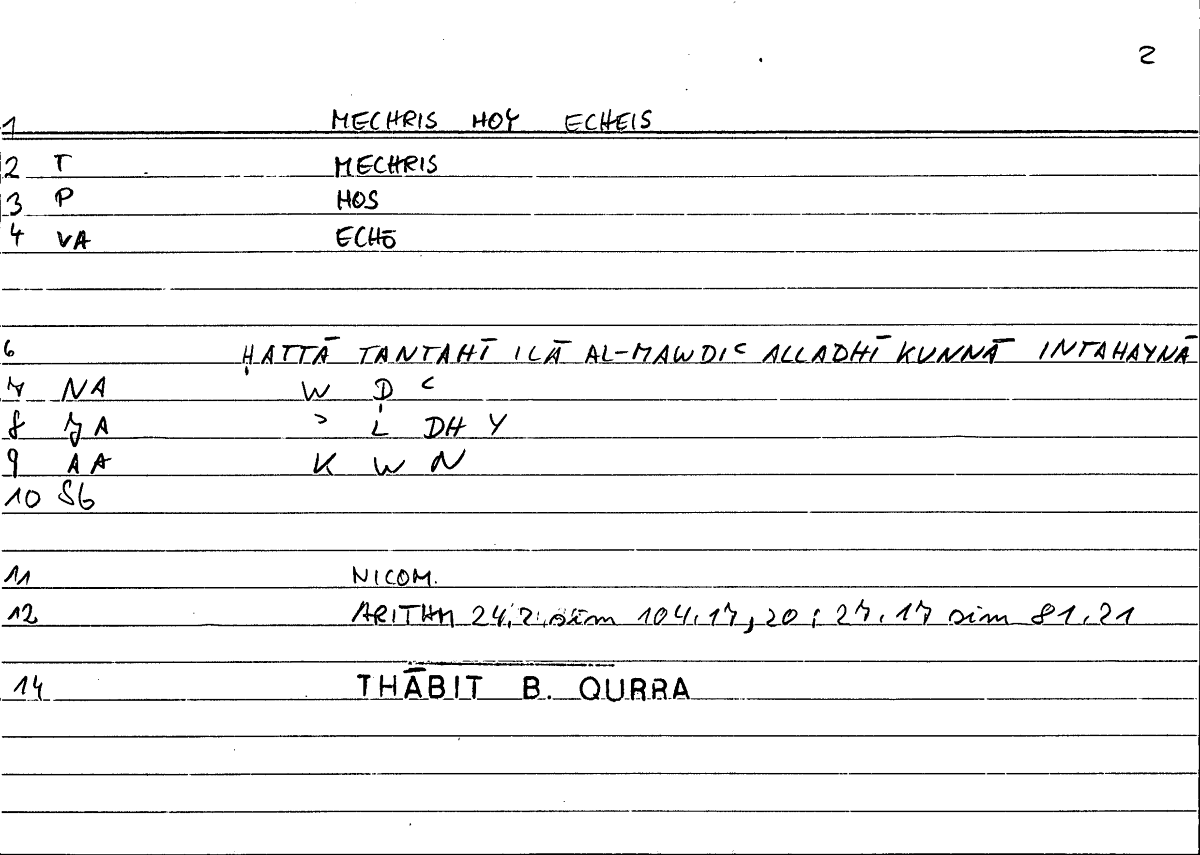 2
1 MECHRIS HOY ECHEIS
2 T MECHRIS
3 P HOS
4 VA ECHŌ
6 ḤATTĀ TANTAHĪ ILĀ AL-MAWḌIʿ ALLADHĪ KUNNĀ INTAHAYNĀ
7 NA W Ḍ ʿ
8 JA ʾ L DHY
9 AA K W N
10 Sb
11 NICOM.
12 ARITHM 24,2 sim 104.17,20; 27.17 sim 81.21
14 THĀBIT B. QURRA